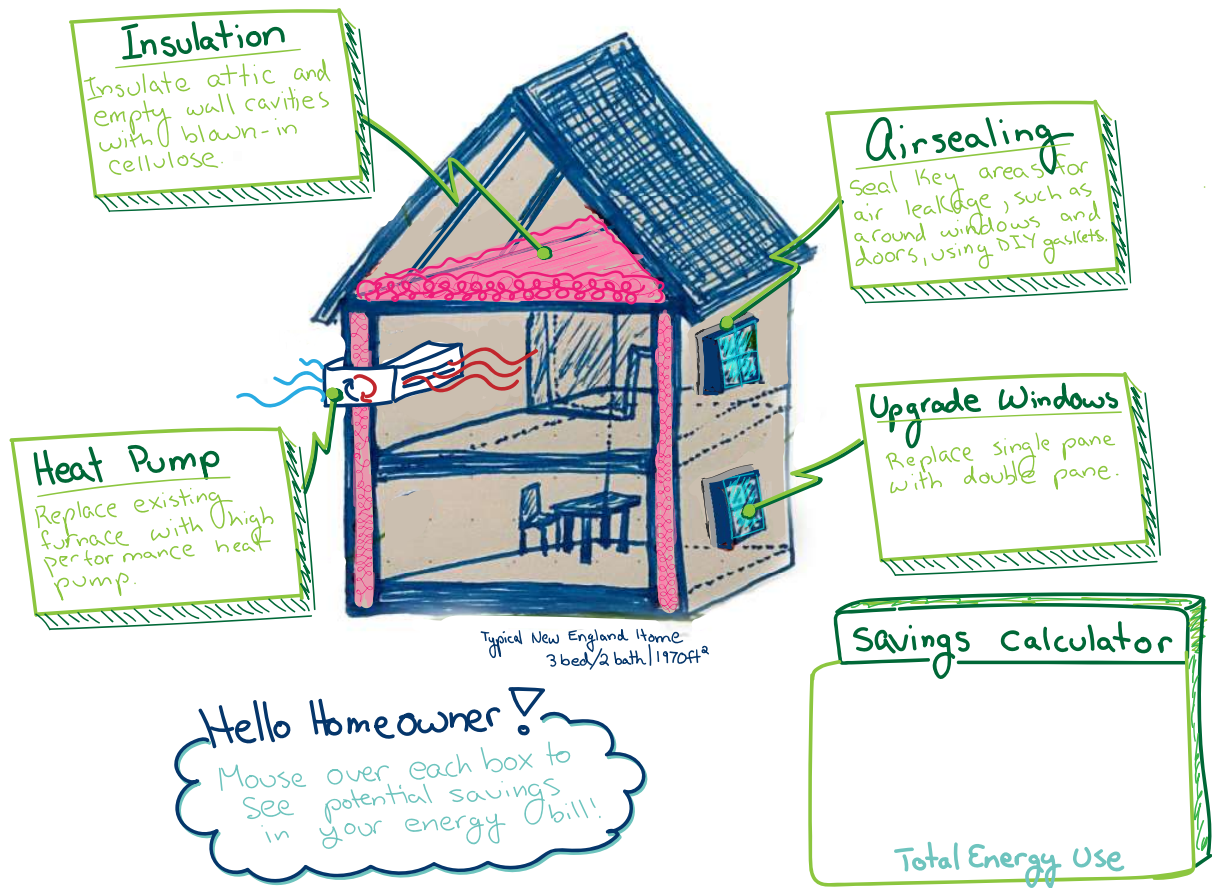 Insulation
Insulate attic and
empty wall cavities
with blown-in
cellulose.
Airsealing
Seal key areas for
air leakage, such as
around windows and
doors, using DIY gaskets.
Upgrade Windows
Replace single pane
with double pane.
Heat Pump
Replace existing
furnace with high
performance heat
pump.
Typical New England Home
3 bed/2 bath | 1970ft²
Savings Calculator
Total Energy Use
Hello Homeowner!
Mouse over each box to
see potential savings
in your energy bill!